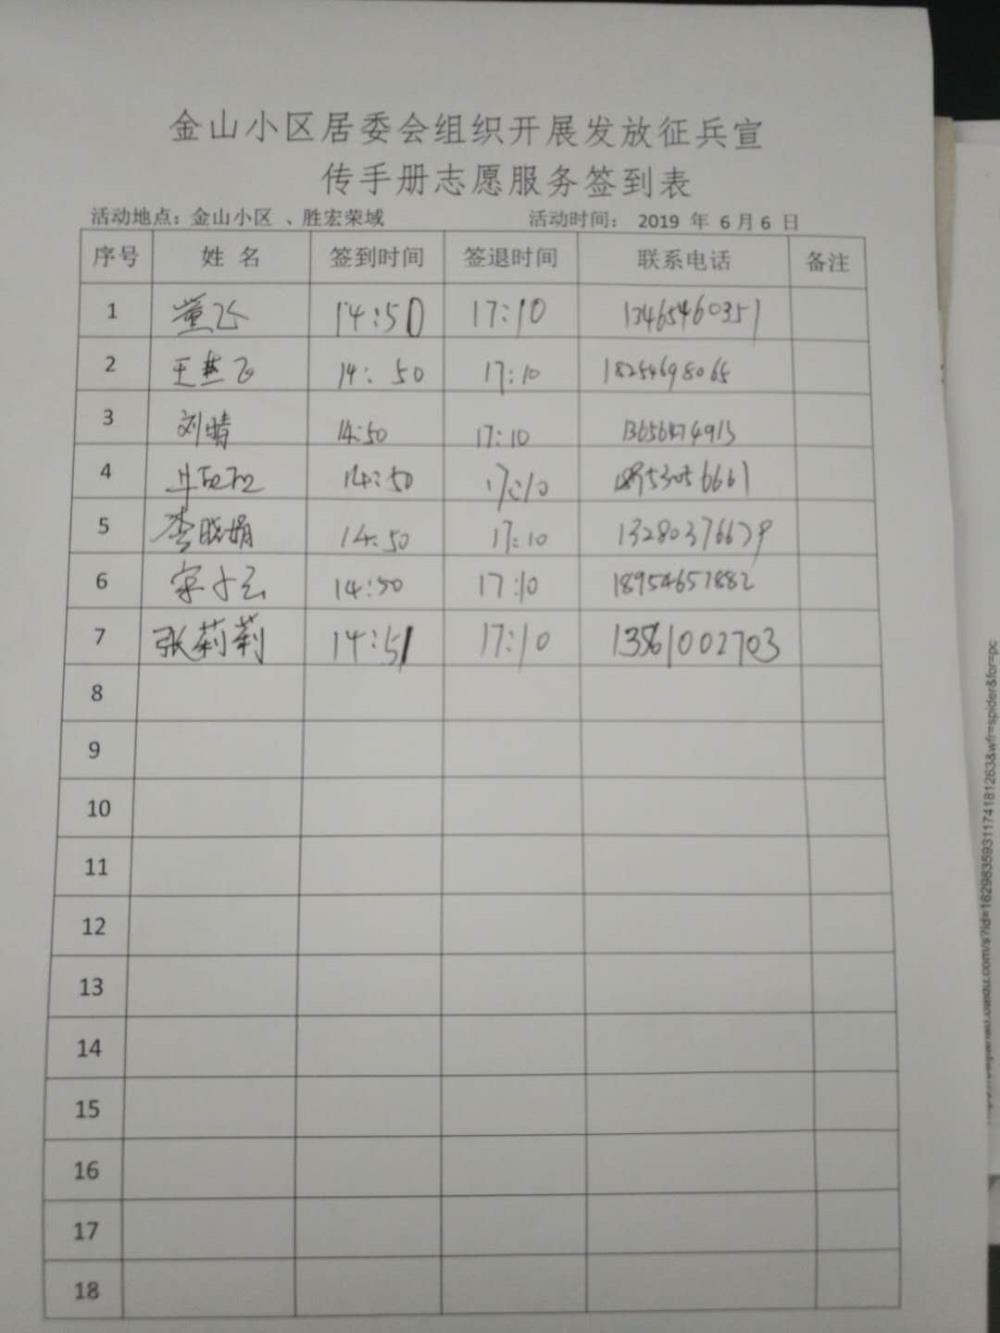 金山小区居委会组织开展发放征兵宣
传手册志愿服务签到表
活动地点：金山小区 、胜宏荣域 活动时间： 2019 年 6月6 日
序号 姓 名 签到时间 签退时间 联系电话 备注
1 董飞 14:50 17:10 13465460351
2 王燕飞 14:50 17:10 18254698065
3 刘晴 14:50 17:10
4 14:50 17:10
5 李晓娟 14:50 17:10
6 14:50 17:10 18954657882
7 张莉莉 14:51 17:10 13561002703
8
9
10
11
12
13
14
15
16
17
18